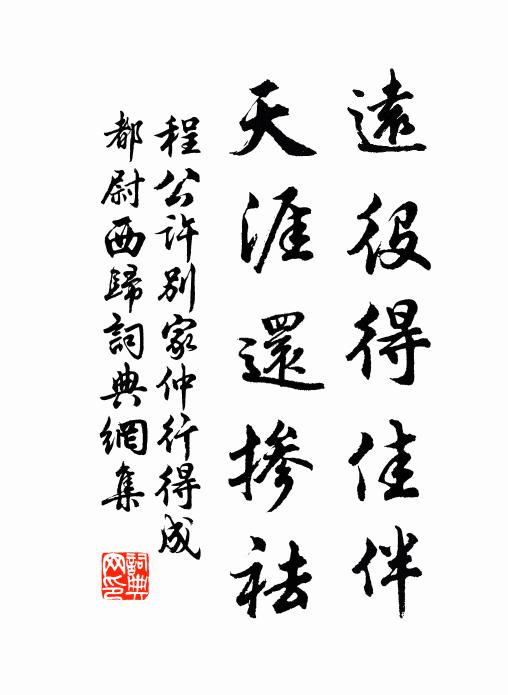 遠役得佳伴
天涯還摻袪
程公許別家仲行得成
都尉西歸詞典網集
詞典網印